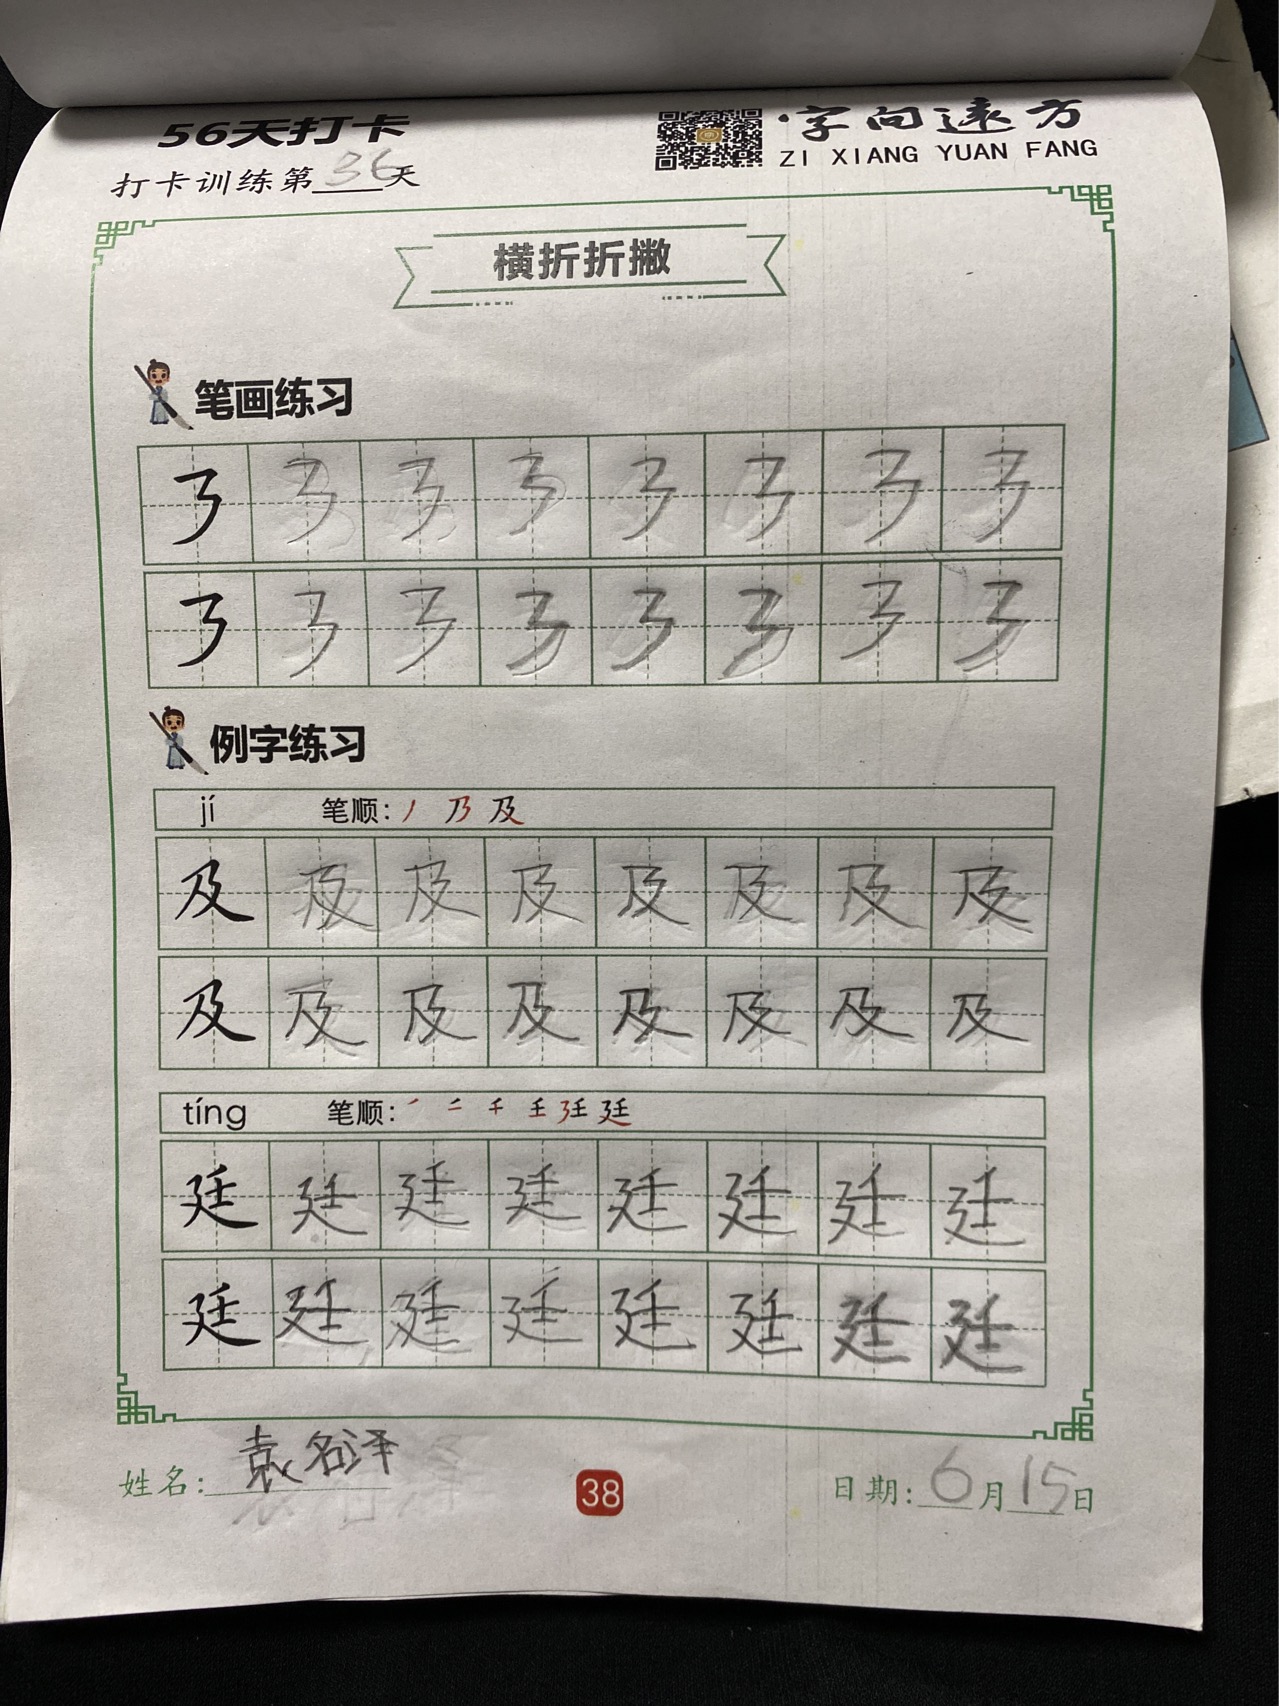 56天打卡
·字向遠方
ZI XIANG YUAN FANG
打卡训练第36天
横折折撇
笔画练习
㇋ ㇋ ㇋ ㇋ ㇋ ㇋ ㇋ ㇋
㇋ ㇋ ㇋ ㇋ ㇋ ㇋ ㇋ ㇋
例字练习
jí 笔顺: 丿 乃 及
及 及 及 及 及 及 及 及
及 及 及 及 及 及 及 及
tíng 笔顺:
廷 廷 廷 廷 廷 廷 廷 廷
廷 廷 廷 廷 廷 廷 廷 廷
姓名: 袁名泽
38
日期: 6月15日